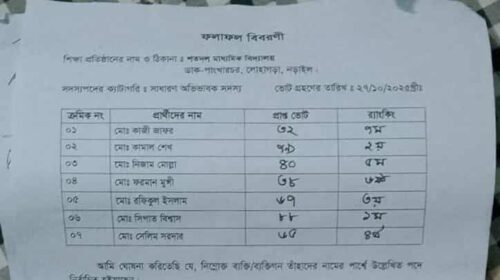 ফলাফল বিবরণী
শিক্ষা প্রতিষ্ঠানের নাম ও ঠিকানা : শতদল মাধ্যমিক বিদ্যালয়
ডাক-পাংখারচর, লোহাগড়া, নড়াইল।
সদস্যপদের ক্যাটাগরি : সাধারণ অভিভাবক সদস্য ভোট গ্রহণের তারিখ : ২৭/১০/২০২৫খ্রীঃ
ক্রমিক নং প্রার্থীদের নাম প্রাপ্ত ভোট র‍্যাংকিং
০১ মোঃ কাজী জাফর ৩২ ৭ম
০২ মোঃ কামাল শেখ ২য়
০৩ মোঃ নিজাম মোল্লা ৪০ ৫ম
০৪ মোঃ ফরমান মুন্সী ৩৮ ৬ষ্ঠ
০৫ মোঃ রফিকুল ইসলাম ৬৭ ৩য়
০৬ মোঃ সিপাত বিশ্বাস ৮৮ ১ম
০৭ মোঃ সেলিম সরদার ৬৫ ৪র্থ
আমি ঘোষনা করিতেছি যে, নিম্নোক্ত ব্যক্তি/ব্যক্তিগন তাঁহাদের নামের পার্শ্বে উল্লেখিত পদে